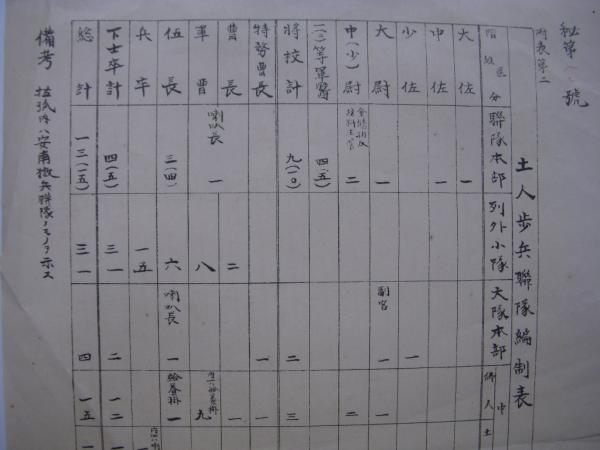 秘第 號
附表第二
土人步兵聯隊編制表
階級區分
大佐
中佐
少佐
大尉
中(少)尉
一(二)等軍醫
將校計
特務曹長
曹長
軍曹
伍長
兵卒
下士卒計
總計
聯隊本部
一
一
一
二
四(五)
九(一〇)
喇叭長 一
三(四)
四(五)
一三(一五)
列外小隊
二
八
六
一五
三一
三一
大隊本部
一
副官 一
二
一
喇叭長 一
二
四
中
佛人
土
一
二
三
一
一
九
給養掛 一
一二
一五
備考 括弧內ハ安南徵兵聯隊ノモノヲ示ス